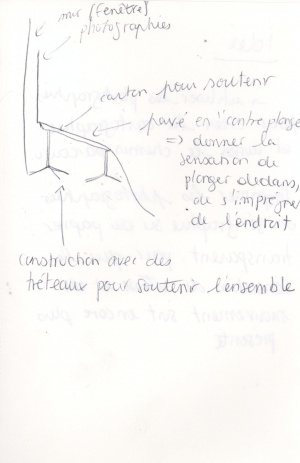 mur (fenêtre)
photographies
carton pour soutenir
pavé en "contre plongée"
=> donner la
sensation de
plonger dedans,
de s'imprégner
de l'endroit
construction avec des
tréteaux pour soutenir l'ensemble